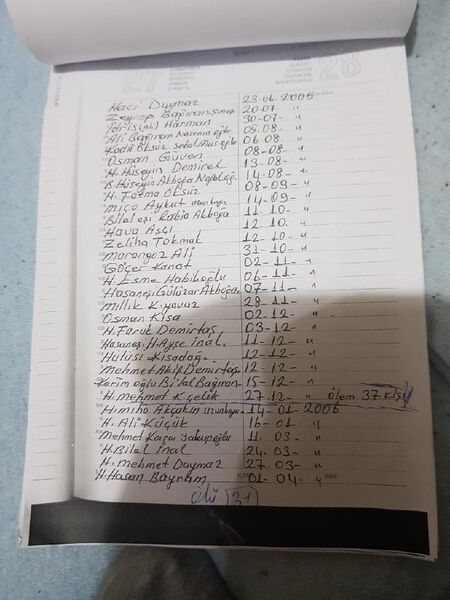 27 28
Hacı Duymaz 23-06-2005
Zeynep Bağıran 20-07- "
İdris (Ali) Harman 30-07- "
Ali Bağıran Nazenin oğlu 05.08- "
Kadir Öksüz 06.08 "
Osman Güven 08-08- "
H. Hüseyin Demirel 13-08- "
B. Hüseyin Akboğa 14-08- "
H. Fatma Öksüz 08-09- "
Miço Aykut 14-09- "
Bilal eşi Rabia Akboğa 11-10- "
Hava Aşçı 12.10. "
Zeliha Tokmak 12-10- "
Marangoz Ali 31-10- "
Göçer Kanat 02-11- "
H. Esme Habiboğlu 06-11- "
Hasaneşi Gülüzar Akboğa 07-11- "
Millik K.yavuz 28-11- "
Osman Kısa 02-12- "
H. Faruk Demirtaş 03-12- "
Hasaneşi H. Ayşe İnal 11-12- "
Hulusi Kısadağ 12-12- "
Mehmet Akif Demirtaş 12-12- "
Kerim oğlu Bilal Bağıran 15-12- "
H. Mehmet K çelik 27-12- " ölem 37 kişi
H. Miho Akçakın 14-01-2006
H. Ali Küçük 16-01 "
Mehmet Karcı Yakupoğlu 11-03- "
H. Bilal İnal 24-03- "
H. Mehmet Duymaz 27-03- "
H. Hasan Bayram 01-04- "
Ölü (31)